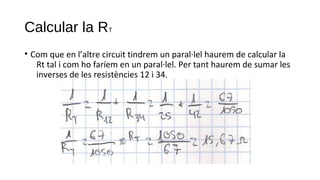 Calcular la RT
• Com que en l'altre circuit tindrem un paral·lel haurem de calcular la
Rt tal i com ho faríem en un paral·lel. Per tant haurem de sumar les
inverses de les resistències 12 i 34.
1/RT = 1/R12 + 1/R34 = 1/25 + 1/42 = 67/1050
1/RT = 67/1050 = RT = 1050/67 = 15,67 Ω